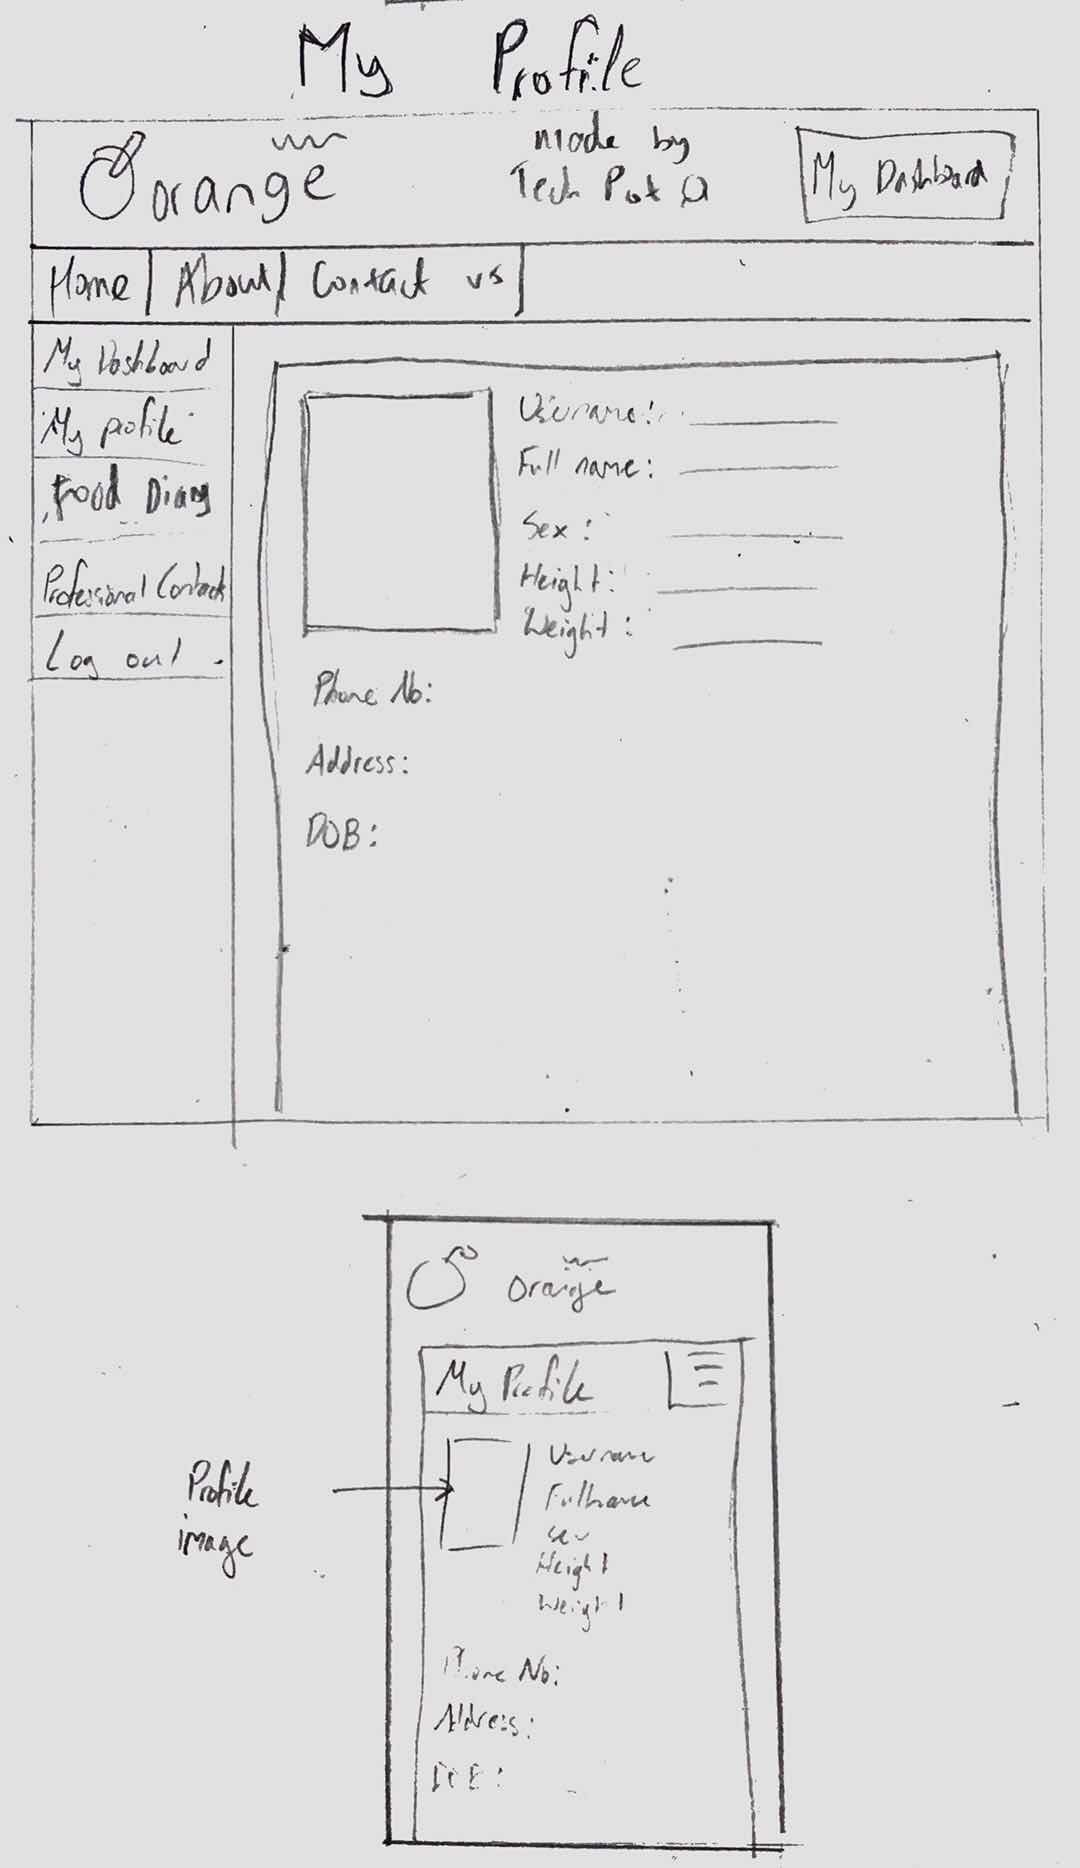 My Profile
orange
made by
Tech Pot
My Dashboard
Home About Contact us
My Dashboard
My profile
Food Diary
Professional Contact
Log out
Username:
Full name:
Sex:
Height:
Weight:
Phone No:
Address:
DOB:
orange
My Profile
Username
Fullname
Sex
Height
Weight
Profile
image
Phone No:
Address:
DOB: